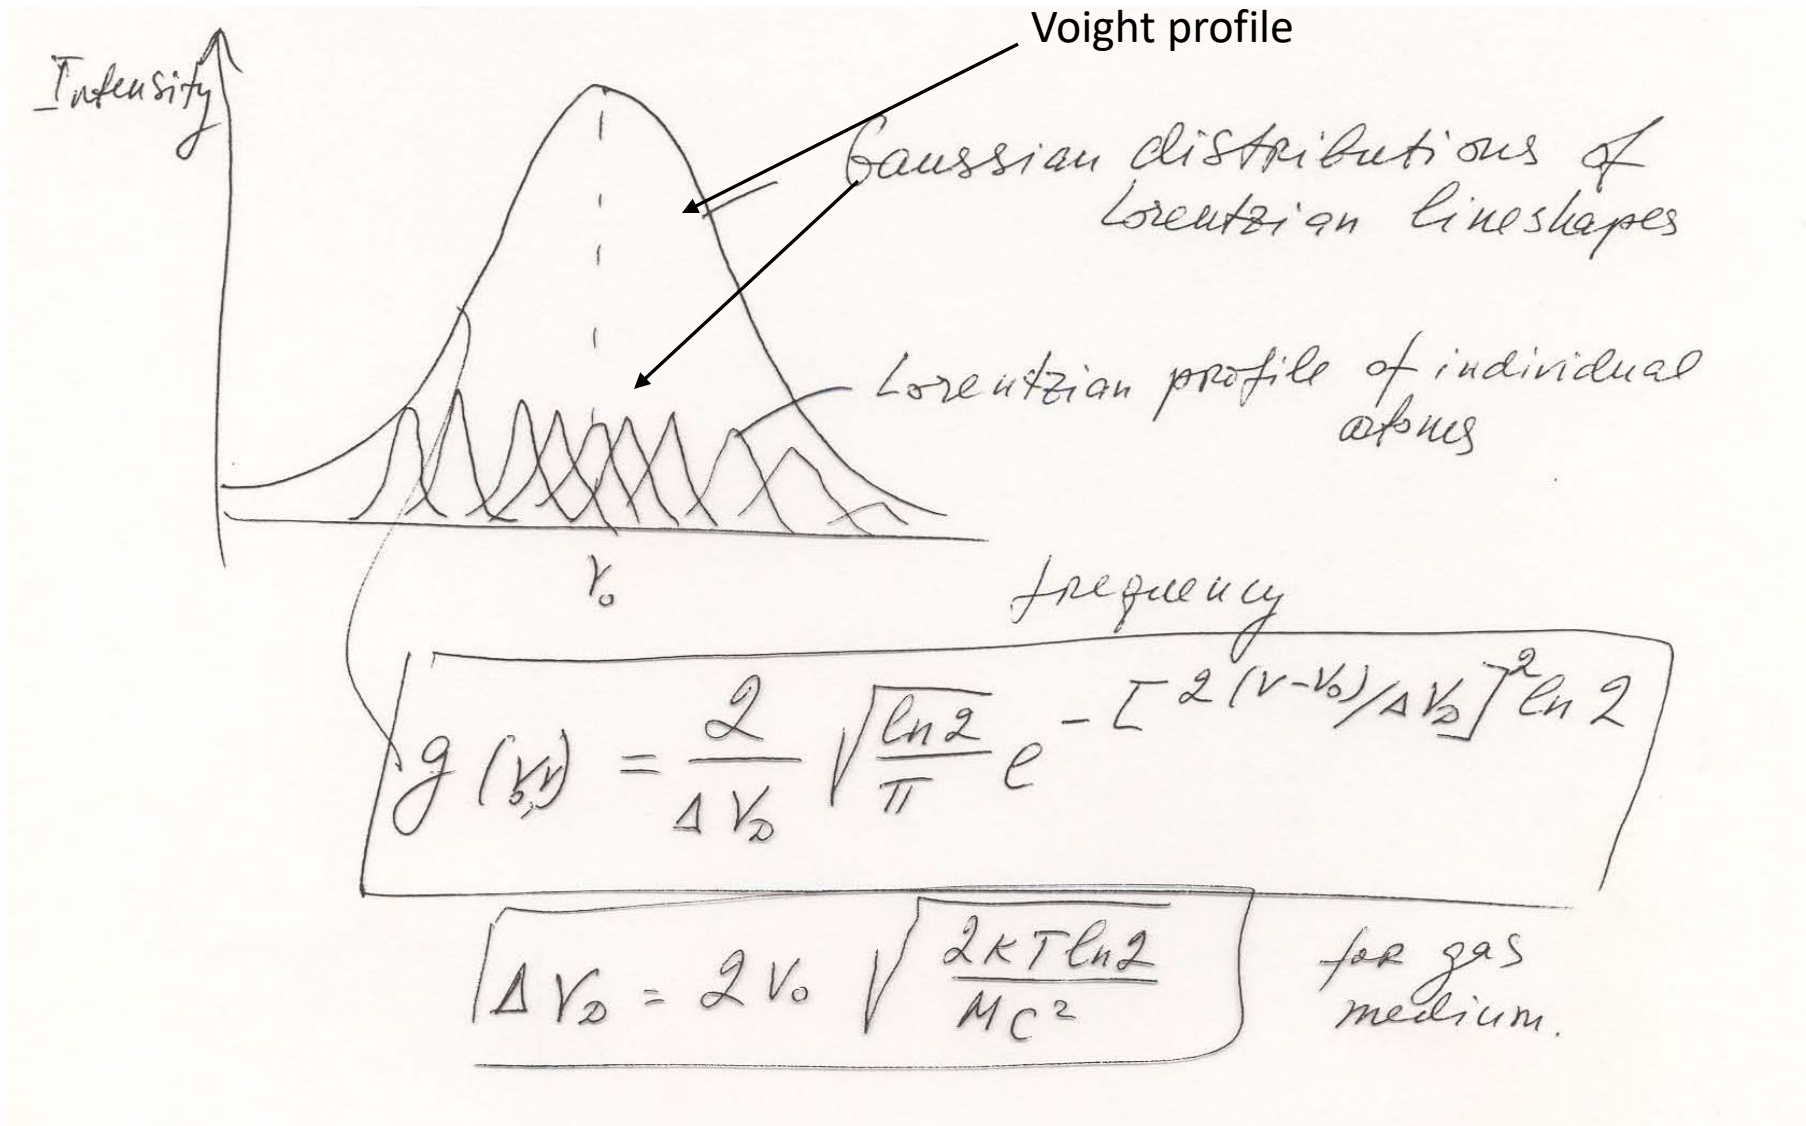 Voight profile
Intensity
Gaussian distributions of
Lorentzian lineshapes
Lorentzian profile of individual
atoms
ν₀
frequency
g(ν₀,ν) = 2/Δν_D √(ln2/π) e^-[2(ν-ν₀)/Δν_D]² ln 2
Δν_D = 2ν₀ √(2kT ln2/Mc²)
for gas
medium.